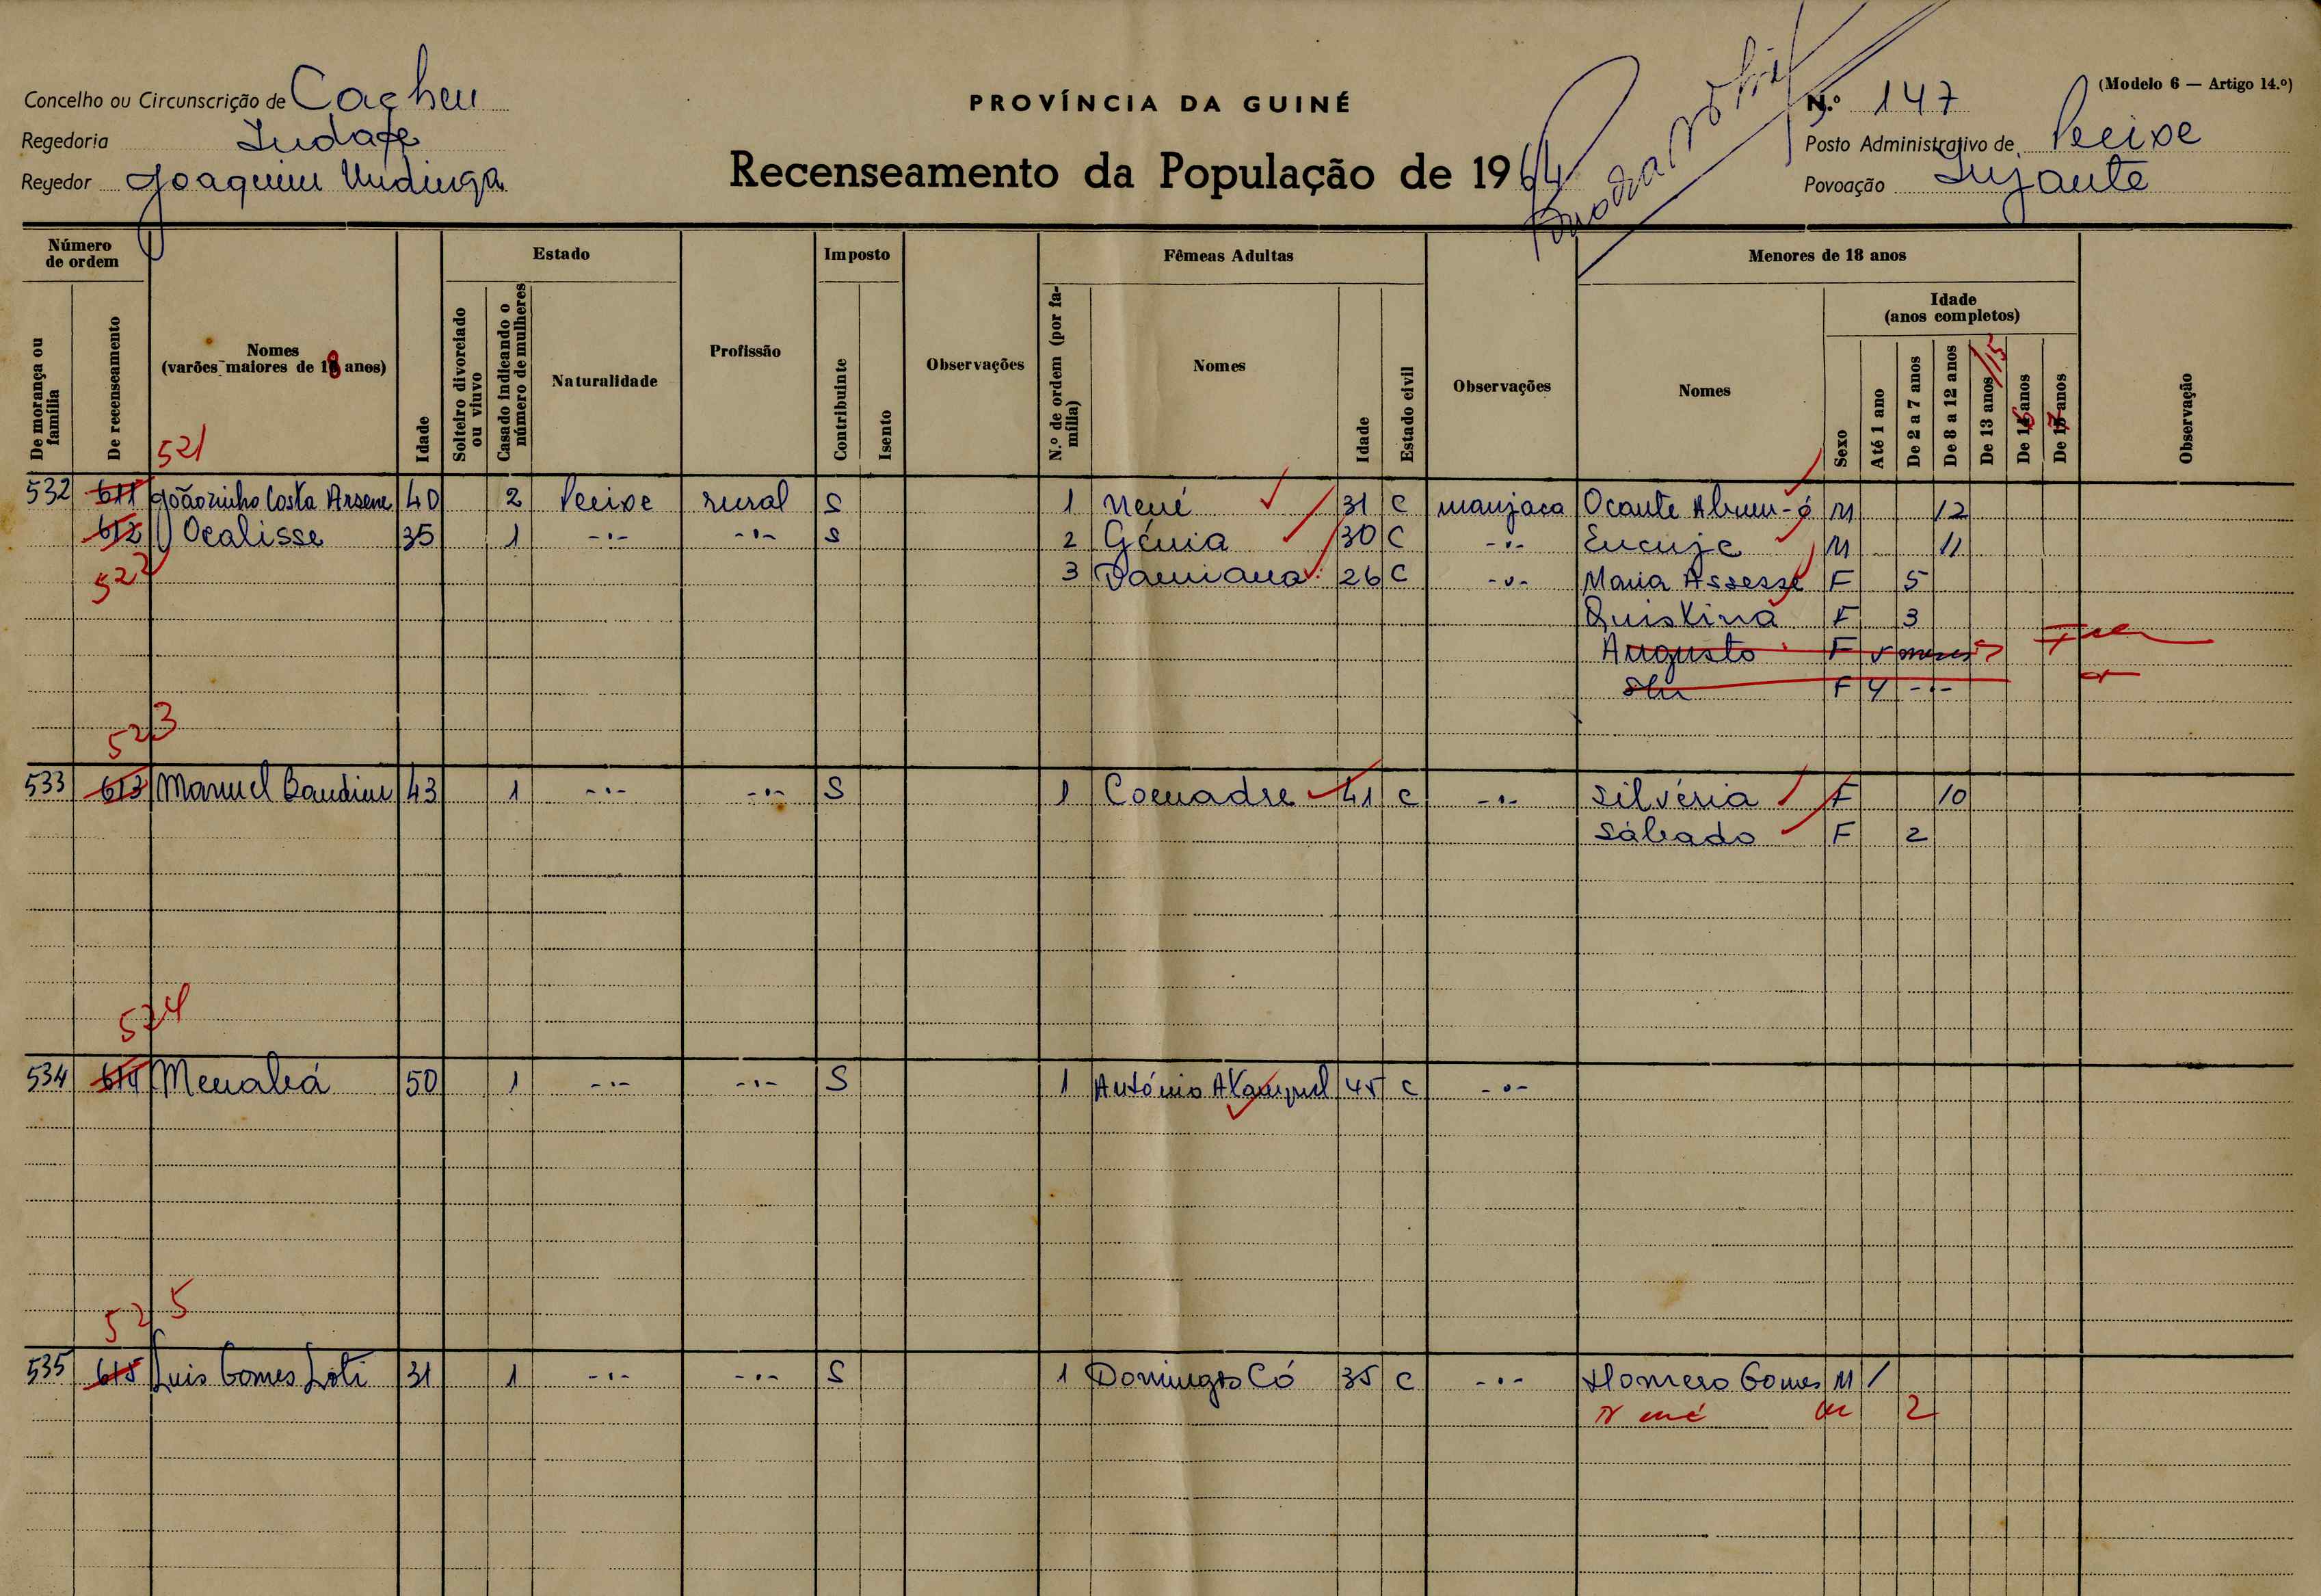 Concelho ou Circunscrição de Cacheu
Regedoria
Regedor Joaquim
PROVÍNCIA DA GUINÉ
Recenseamento da População de 1964
(Modelo 6 — Artigo 14.º)
N.º 147
Posto Administrativo de Pecixe
Povoação
Número de ordem
De morança ou família
De recenseamento
Nomes
(varões maiores de 18 anos)
Idade
Estado
Solteiro divorciado ou viuvo
Casado indicando o número de mulheres
Naturalidade
Profissão
Imposto
Contribuinte
Isento
Observações
Fêmeas Adultas
N.º de ordem (por família)
Nomes
Idade
Estado civil
Observações
Menores de 18 anos
Nomes
Idade
(anos completos)
Sexo
Até 1 ano
De 2 a 7 anos
De 8 a 12 anos
De 13 anos /15
De 16 anos
De 17 anos
Observação
521
532 611 Joãozinho Costa Arsene 40 2 Pecixe rural S 1 Nené 31 C manjaca Ocante M 12
612 Ocalisse 35 1 -·- -·- S 2 Génia 30 C -·- M 11
522
3 Damiana 26 C -·- Maria Assesse F 5
Quistina F 3
Augusto F 5 meses
F 4 -·-
523
533 613 Manuel 43 1 -·- -·- S 1 Comadre 41 C -·- Silvéria F 10
Sábado F 2
524
534 614 50 1 -·- -·- S 1 António 45 C -·-
525
535 615 Luis Gomes 31 1 -·- -·- S 1 Domingos Có 35 C -·- Homero Gomes M 1
2